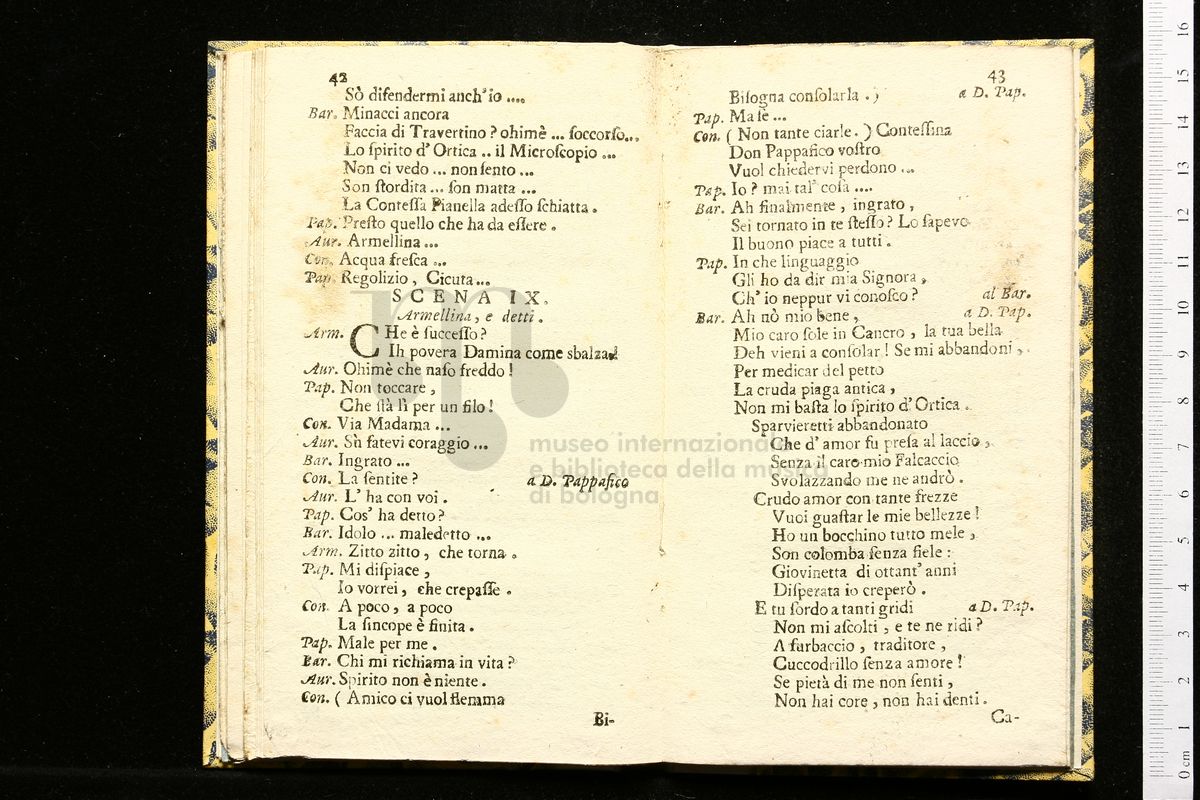 42
Sò difendermi anch'io ....
Bar. Minacci ancora
Faccia di Travertino? ohimè ... soccorso...,
Lo ſpirito d'Ortica .. il Microſcopio ...
Non ci vedo ... non ſento ...
Son ſtordita ... ſon matta ...
La Conteſſa Pianella adeſſo ſchiatta.
Pap. Preſto quello che ha da eſſere.
Aur. Armellina ...
Con. Acqua freſca ...
Pap. Regolizio, Cicuta...
SCENA IX.
Armellina, e detti.
Arm. CHe è ſucceſſo?
Ih povera Damina come sbalza!
Aur. Ohimè che naſo freddo!
Pap. Non toccare,
Che ſtà lì per un filo!
Con. Via Madama ...
Aur. Sù fatevi coraggio ...
Bar. Ingrato ...
Con. La ſentite? a D. Pappafico
Aur. L'ha con voi.
Pap. Cos' ha detto?
Bar. Idolo ... maledetto ...
Arm. Zitto zitto, che torna.
Pap. Mi diſpiace,
Io vorrei, che crepaſſe.
Con. A poco, a poco
La ſincope è finita.
Pap. Male per me.
Bar. Chi mi richiama in vita?
Aur. Spirito non è niente.
Con. ( Amico ci vuol flemma
Bi-
43
Biſogna conſolarla.) a D. Pap.
Pap. Ma ſe ...
Con. ( Non tante ciarle. ) Conteſſina
Don Pappafico voſtro
Vuol chiedervi perdono ...
Pap. Io? mai tal' coſa ....
Bar. Ah finalmente, ingrato,
Sei tornato in te ſteſſo? Lo ſapevo
Il buono piace a tutti.
Pap. In che linguaggio
Gli ho da dir mia Signora,
Ch'io neppur vi conoſco? al Bar.
Bar. Ah nò mio bene, a D. Pap.
Mio caro ſole in Cancro, la tua bella
Deh vieni a conſolar! Se mi abbandoni,
Per medicar del petto
La cruda piaga antica,
Non mi baſta lo ſpirito d'Ortica.
Sparvieretti abbandonato
Che d'amor fu preſa al laccio,
Senza il caro mio Falcaccio
Svolazzando me ne andrò.
Crudo amor con tante frezze
Vuoi guaſtar le mie bellezze!
Ho un bocchino tutto mele,
Son colomba ſenza fiele:
Giovinetta di ottant' anni
Diſperata io creperò.
E tu ſordo a tanti gridi a D. Pap.
Non mi aſcolti, e te ne ridi?
A furbaccio, traditore,
Cuccodrillo ſenza amore!
Se pietà di me non ſenti,
Non hai core, non hai denti.
Ca-
museo internazionale
e biblioteca della musica
di bologna
0 cm 1 2 3 4 5 6 7 8 9 10 11 12 13 14 15 16